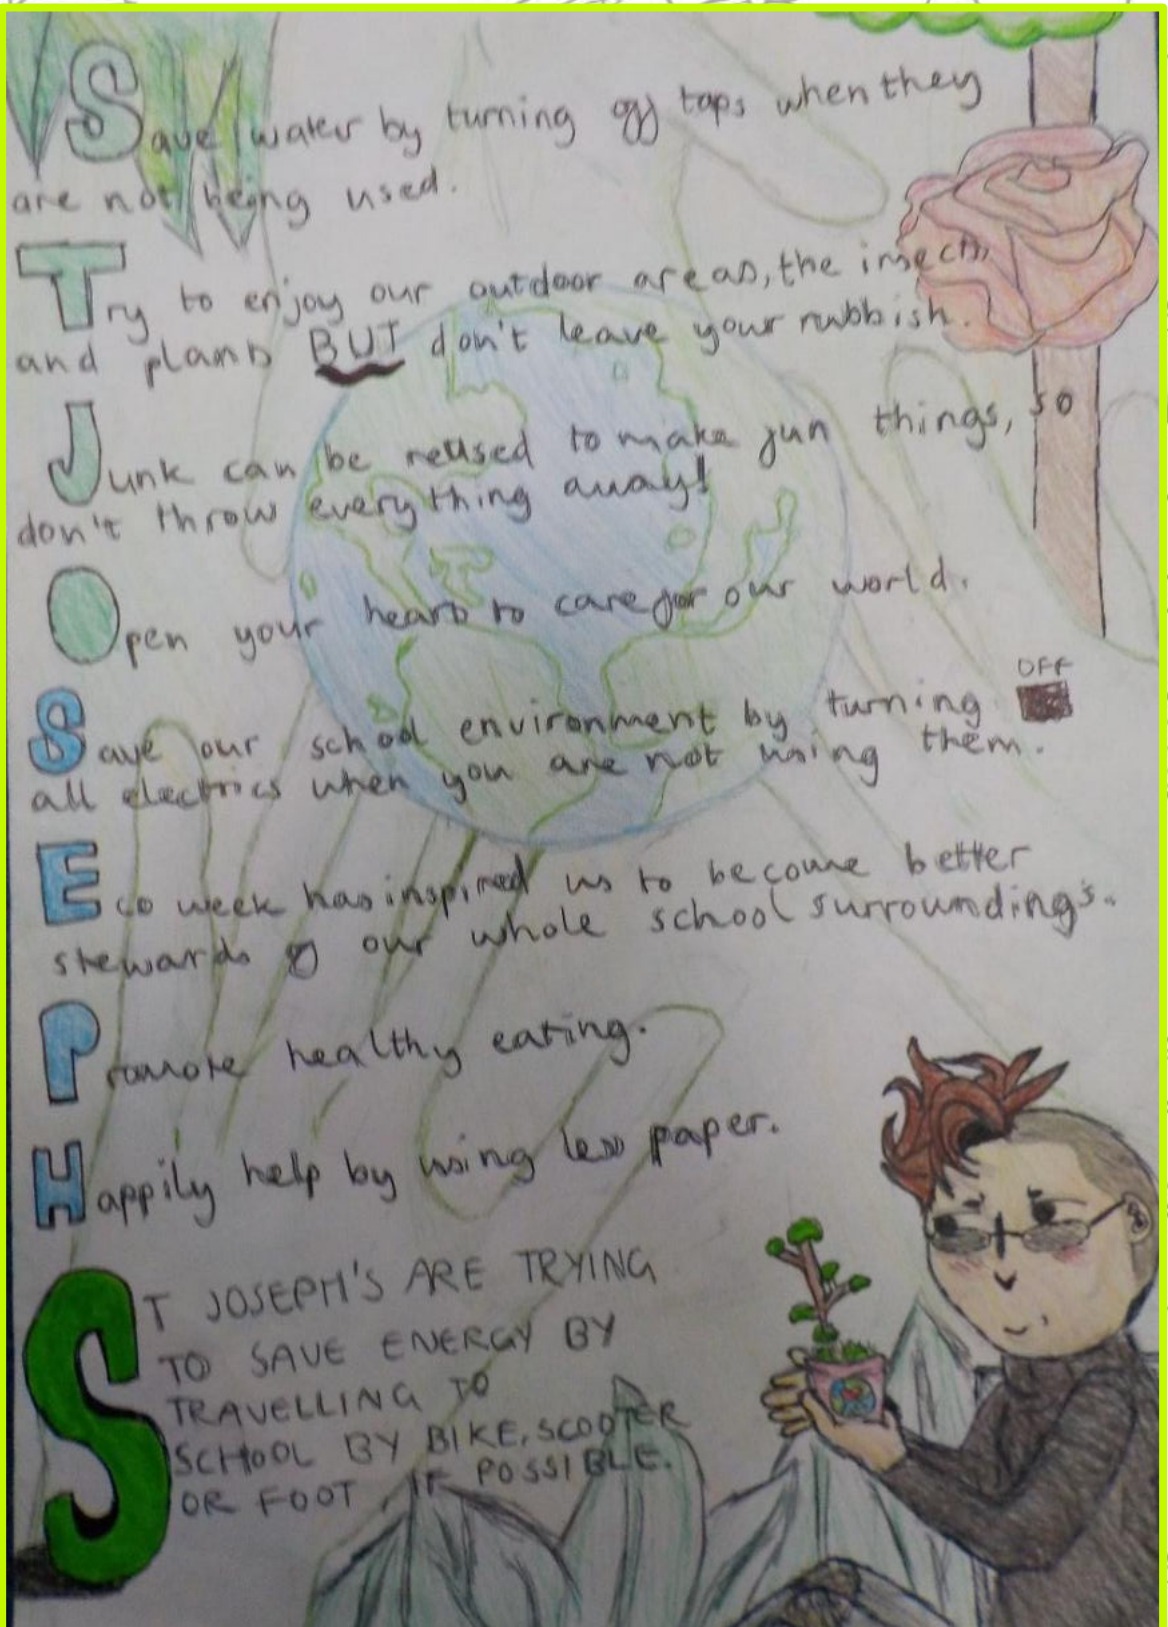 Save water by turning off taps when they
are not being used.
Try to enjoy our outdoor areas, the insects
and plants BUT don't leave your rubbish.
Junk can be reused to make fun things, so
don't throw everything away!
Open your hearts to care for our world.
OFF
Save our school environment by turning
all electrics when you are not using them.
Eco week has inspired us to become better
stewards of our whole school surroundings.
Promote healthy eating.
Happily help by using less paper.
ST JOSEPH'S ARE TRYING
TO SAVE ENERGY BY
TRAVELLING TO
SCHOOL BY BIKE, SCOOTER
OR FOOT, IF POSSIBLE.